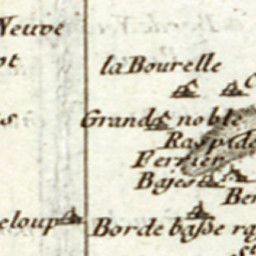 Neuve
la Bourelle
Grands noble
Raspide
Ferrier
Bajes
Ber
eloup
Borde basse